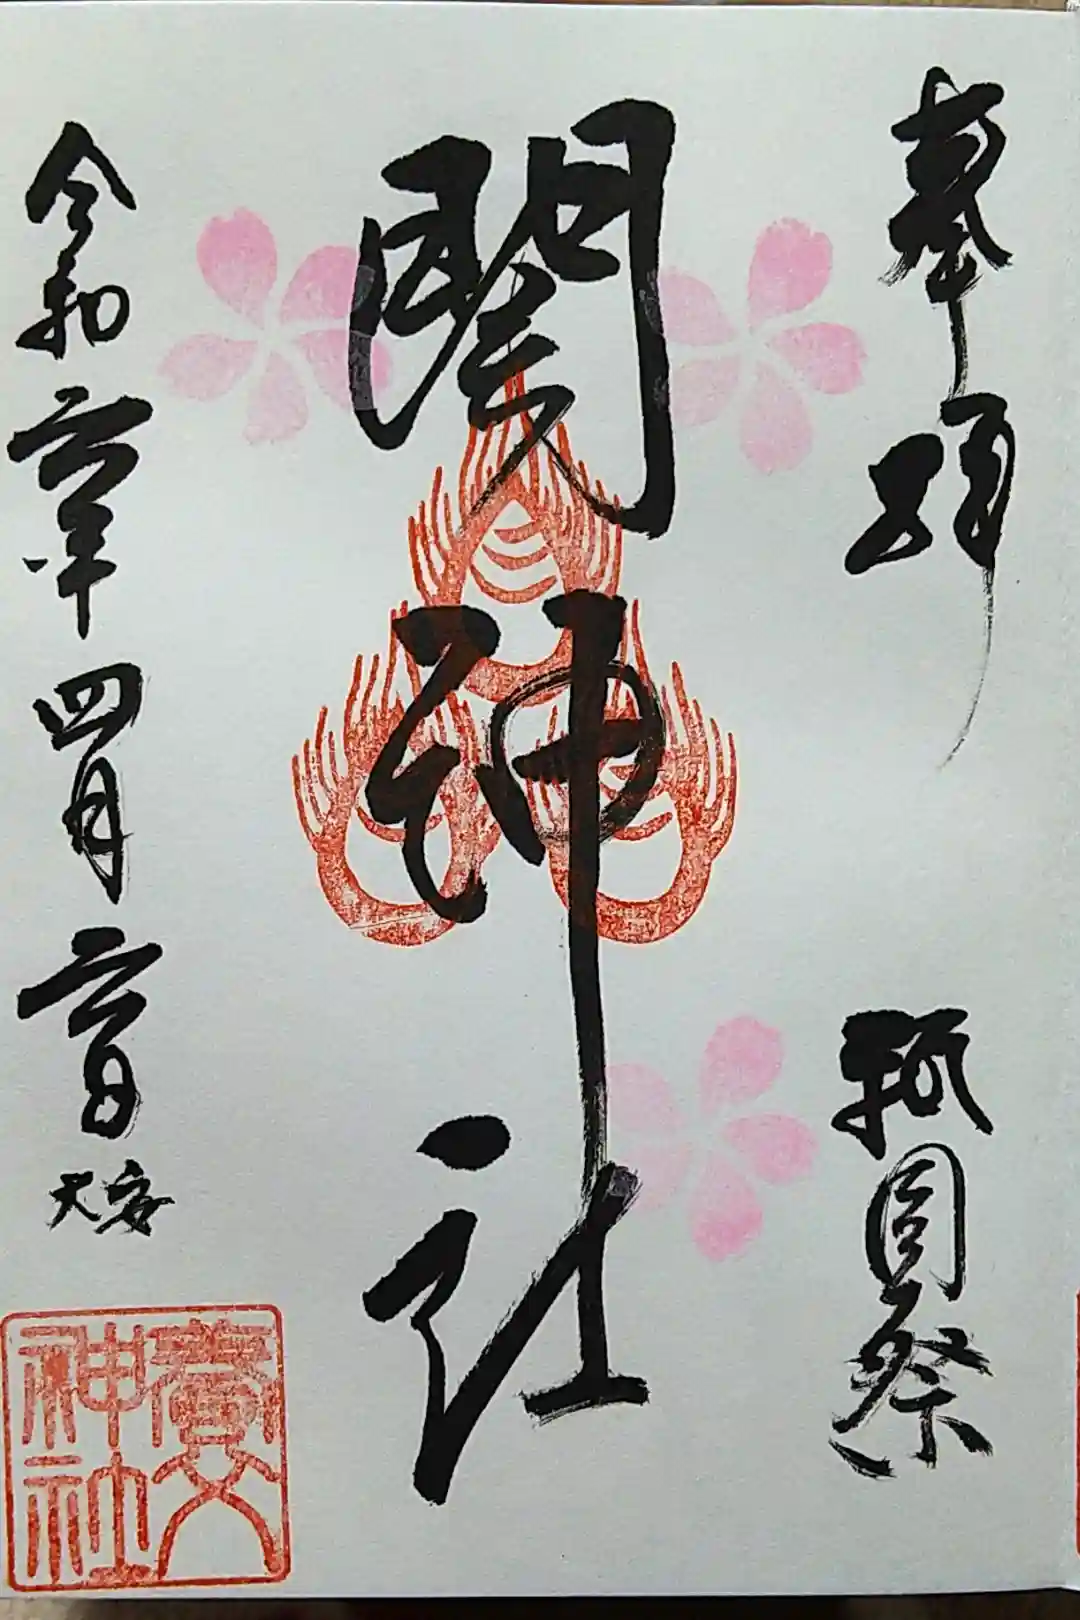 奉拝
祇園祭
神社
令和六年四月六日 大安
神社